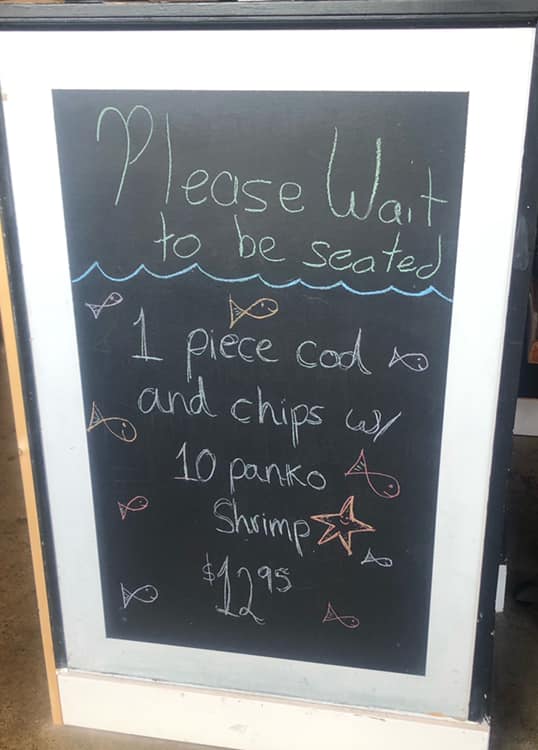 Please Wait
to be seated
1 piece cod
and chips w/
10 panko
Shrimp
$12.95